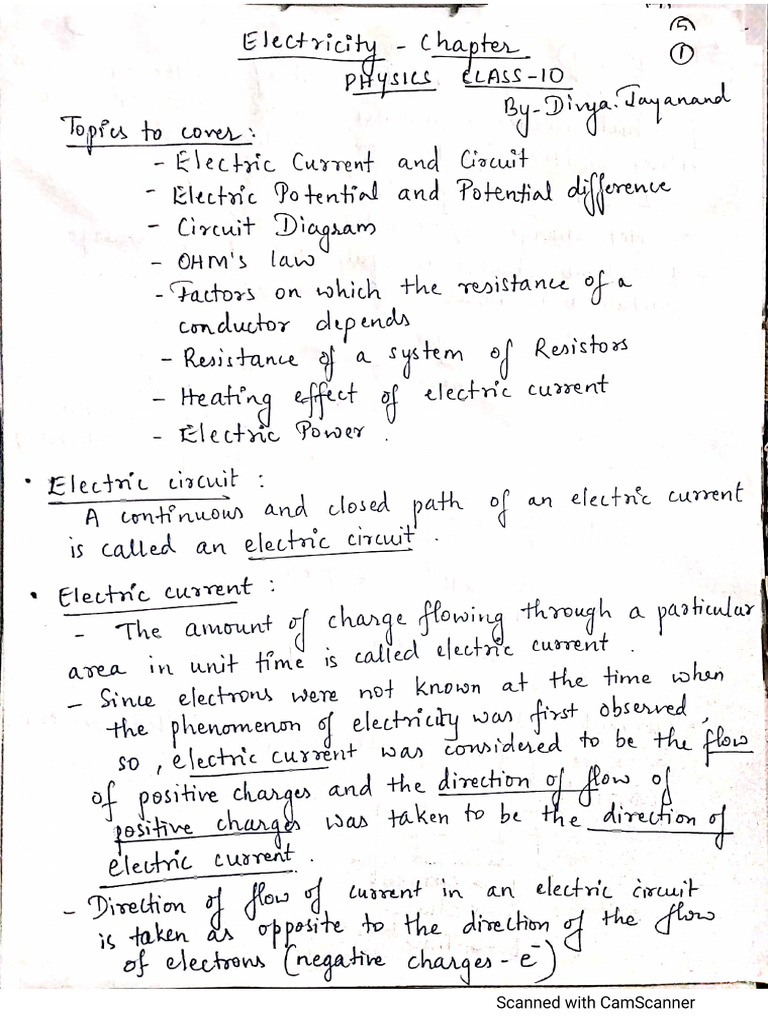 5
1
Electricity - Chapter
PHYSICS CLASS-10
By-Divya Jayanand
Topics to cover:
- Electric Current and Circuit
- Electric Potential and Potential difference
- Circuit Diagram
- OHM's law
- Factors on which the resistance of a
conductor depends
- Resistance of a system of Resistors
- Heating effect of electric current
- Electric Power.
• Electric circuit :
A continuous and closed path of an electric current
is called an electric circuit.
• Electric current :
- The amount of charge flowing through a particular
area in unit time is called electric current.
- Since electrons were not known at the time when
the phenomenon of electricity was first observed,
so, electric current was considered to be the flow
of positive charges and the direction of flow of
positive charges was taken to be the direction of
electric current.
- Direction of flow of current in an electric circuit
is taken as opposite to the direction of the flow
of electrons (negative charges - e⁻)
Scanned with CamScanner